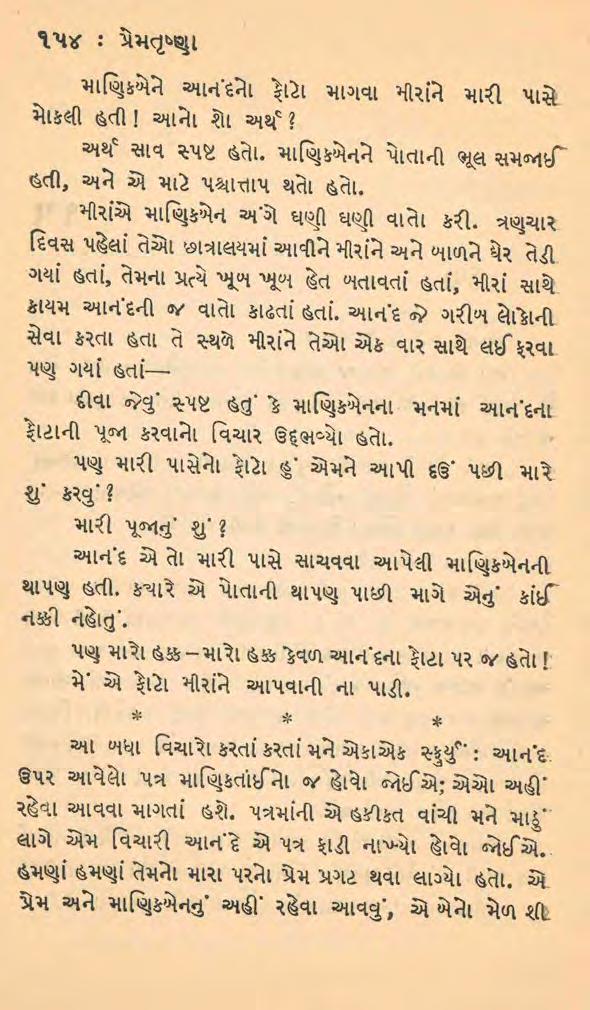 ૧૫૪ : પ્રેમતૃષ્ણા
માણિકબેને આનંદનો ફોટો માગવા મીરાંને મારી પાસે
મોકલી હતી! આનો શો અર્થ?
અર્થ સાવ સ્પષ્ટ હતો. માણિકબેનને પોતાની ભૂલ સમજાઈ
હતી, અને એ માટે પશ્ચાત્તાપ થતો હતો.
મીરાંએ માણિકબેન અંગે ઘણી ઘણી વાતો કરી. ત્રણચાર
દિવસ પહેલાં તેઓ છાત્રાલયમાં આવીને મીરાંને અને બાળને ઘેર તેડી
ગયાં હતાં, તેમના પ્રત્યે ખૂબ ખૂબ હેત બતાવતાં હતાં, મીરાં સાથે
કાયમ આનંદની જ વાતો કાઢતાં હતાં. આનંદ જે ગરીબ લોકોની
સેવા કરતા હતા તે સ્થળે મીરાંને તેઓ એક વાર સાથે લઈ ફરવા
પણ ગયાં હતાં—
દીવા જેવું સ્પષ્ટ હતું કે માણિકબેનના મનમાં આનંદના
ફોટાની પૂજા કરવાનો વિચાર ઉદ્ભવ્યો હતો.
પણ મારી પાસેનો ફોટો હું એમને આપી દઉં પછી મારે
શું કરવું?
મારી પૂજાનું શું?
આનંદ એ તો મારી પાસે સાચવવા આપેલી માણિકબેનની
થાપણ હતી. ક્યારે એ પોતાની થાપણ પાછી માગે એનું કાંઈ
નક્કી નહોતું.
પણ મારો હક્ક – મારો હક્ક કેવળ આનંદના ફોટા પર જ હતો!
મેં એ ફોટો મીરાંને આપવાની ના પાડી.
* * *
આ બધા વિચારો કરતાં કરતાં મને એકાએક સ્ફુર્યું : આનંદ
ઉપર આવેલો પત્ર માણિકતાંઈનો જ હોવો જોઈએ; એઓ અહીં
રહેવા આવવા માગતાં હશે. પત્રમાંની એ હકીકત વાંચી મને માઠું
લાગે એમ વિચારી આનંદે એ પત્ર ફાડી નાખ્યો હોવો જોઈએ.
હમણાં હમણાં તેમનો મારા પરનો પ્રેમ પ્રગટ થવા લાગ્યો હતો. એ
પ્રેમ અને માણિકબેનનું અહીં રહેવા આવવું, એ બેનો મેળ શી